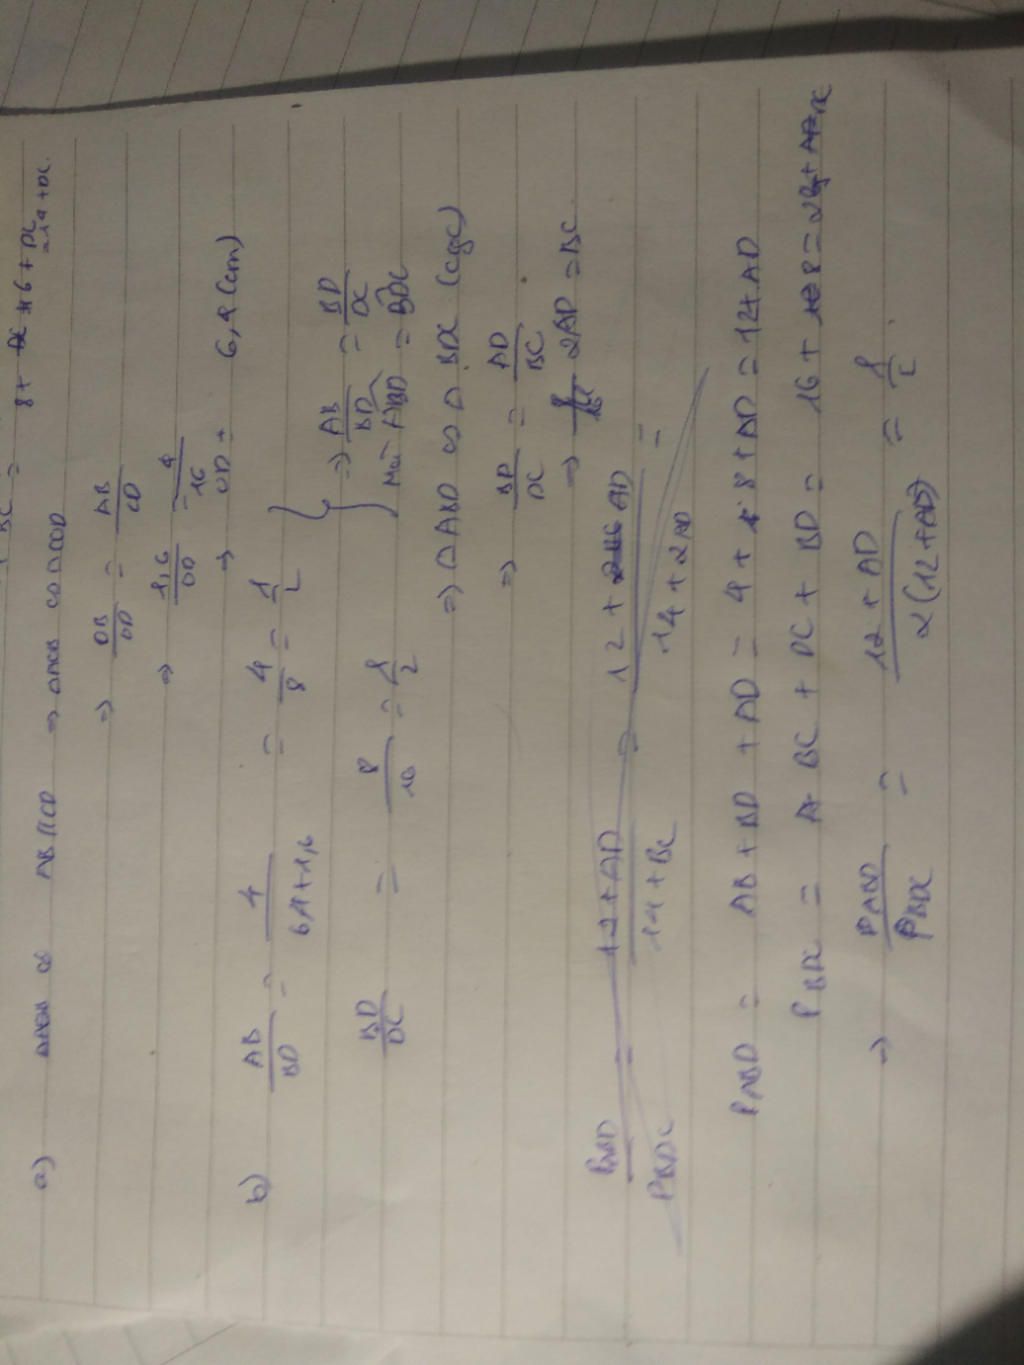 BC =
8 + 16 + DC
= 14 + DC.
a) AB // CD => ∽ ΔCOD
=> OB/OD = AB/CD
=> 1,6/OD = 4/16
=> OD = 6,4 (cm)
b) AB/BD = 4/(6,4+1,6) = 4/8 = 1/2
BD/DC = 8/16 = 1/2
=> AB/BD = BD/DC
Mà ABD = BDC
=> ΔABD ∽ Δ BDC (cgc)
=> BD/DC = AD/BC
=> 2AD = BC
PABD/PBDC = (12+AD)/(14+BC) = (12 + AD)/(14 + 2AD) =
PABD = AB + BD + AD = 4 + 8 + AD = 12 + AD
PBDC = BC + DC + BD = 16 + 8 =
=> PABD/PBDC = (12 + AD)/(2(12+AD)) = 1/2.